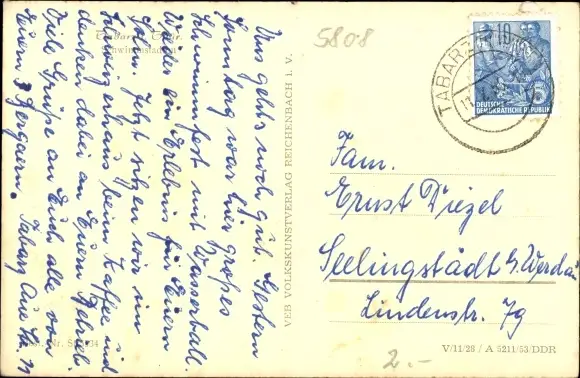 Tabarz, Thür.
Schwimmstadion
Uns geht's noch gut. Gestern
Sonntag war hier großes
Schwimmfest mit Wasserball.
Wieder ein Erlebnis für Euern
Jetzt sitzen wir im
beim Kaffee und
denken dabei an Euern
Viele Grüße an Euch alle von
Euern 3
Tabarz
VEB VOLKSKUNSTVERLAG REICHENBACH I. V.
5808
TABARZ
DEUTSCHE
DEMOKRATISCHE REPUBLIK
Fam.
Ernst Diezel
Seelingstädt b. Werdau
Lindenstr. 7g
2.-
V/11/28 / A 5211/53/DDR